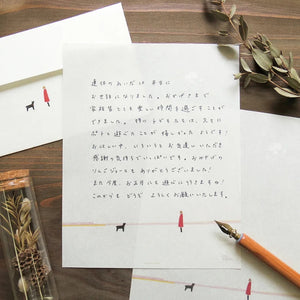 連休のあいだは 本当に
お世話になりました。おかげさまで
家族皆とても楽しい時間を過ごすことが
できました。特に子どもたちは、
遊ぶことが
お忙しい中、いろいろとお気遣いいただき
感謝の気持ちでいっぱいです。おみやげの
りんごジュースもありがとうございました!
また今度、お正月にも遊びに行きますね!
これからも どうぞ よろしくお願いいたします。